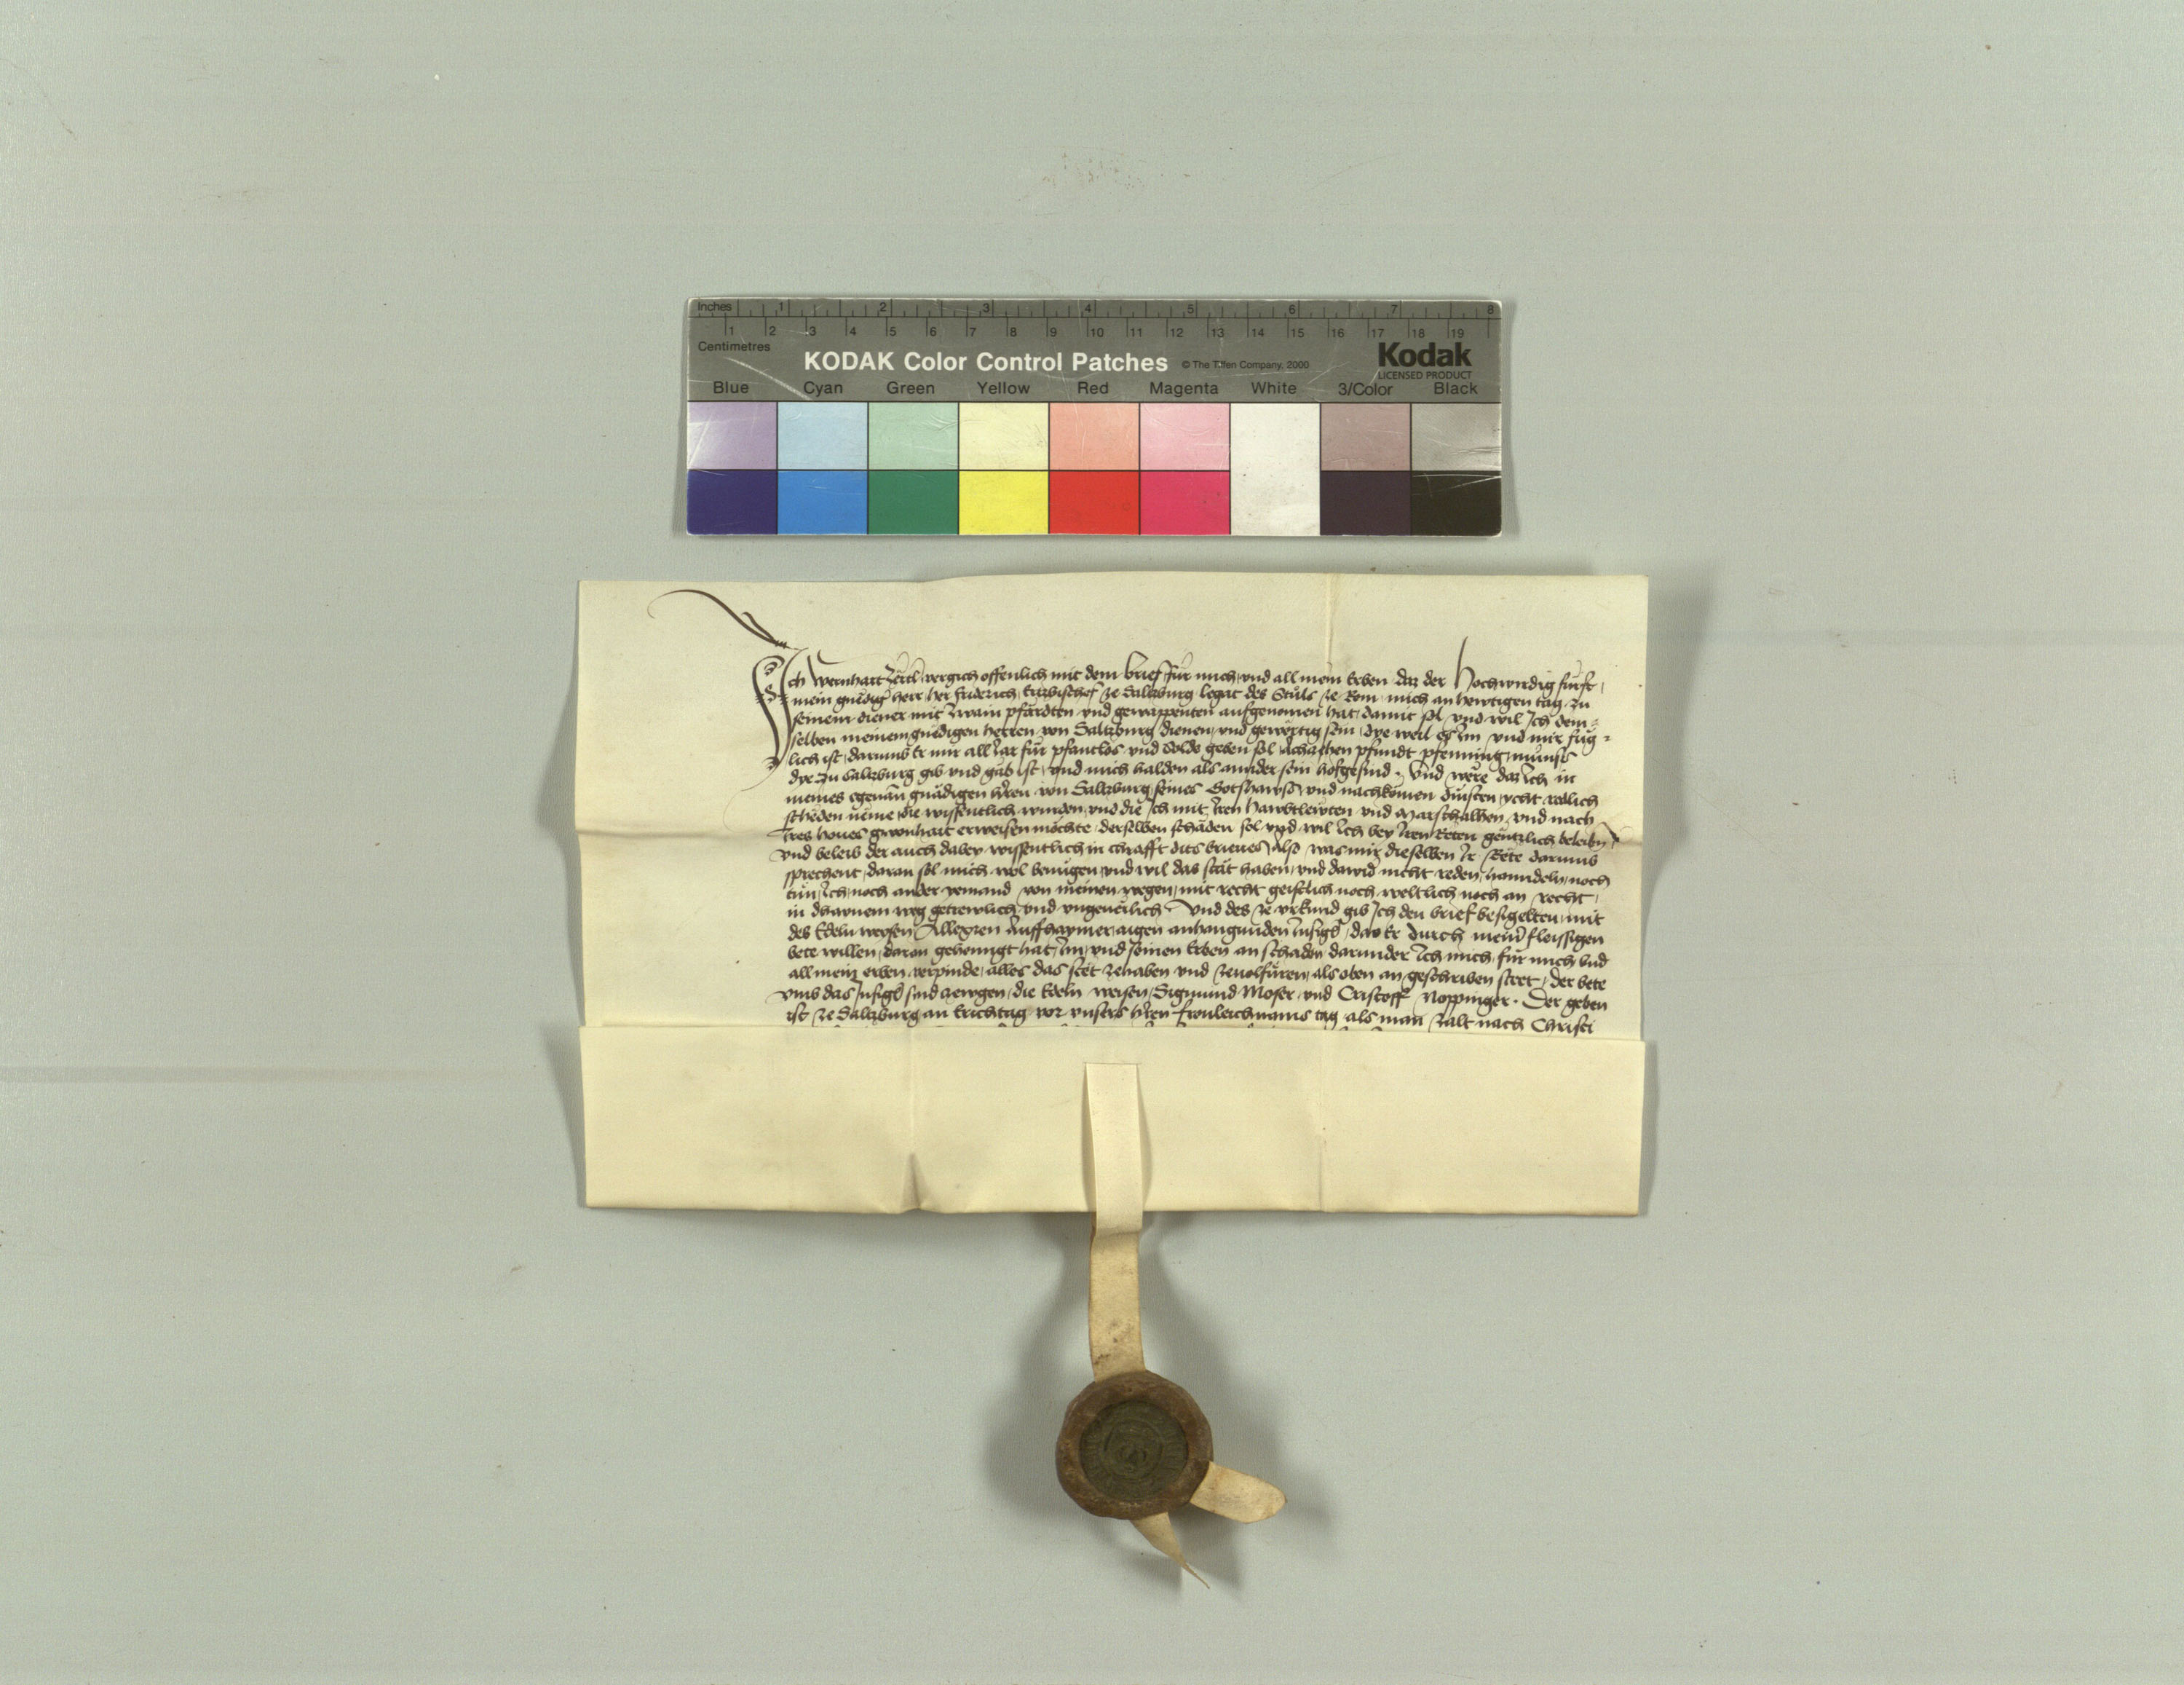 Inches 1 2 3 4 5 6 7 8
1 2 3 4 5 6 7 8 9 10 11 12 13 14 15 16 17 18 19
Centimetres
KODAK Color Control Patches © The Tiffen Company, 2000 Kodak
LICENSED PRODUCT
Blue Cyan Green Yellow Red Magenta White 3/Color Black
Ich vergich offenlich mit dem brief für mich und all mein Erben daz der Hochwirdig fürst
mein gnedig herr her Fridrich Ertzbischof ze Salczburg legat des Stuls ze Rom mich an hewtigen tag zu
seinem diener mit zwain pfärdten und gewappenten aufgenomen hat, damit sol und wil Ich dem-
selben meinem gnedigen herren von Salczburg dienen und gewärtig sein, dye weil es im und mir füg-
lich ist, darumb Er mir all Jar für pfantlos und Solde geben sol Achczehen pfundt pfenning münss
dye zu Salczburg gib und gäb ist, und mich halden als annder sein hofgesind. Und were daz Ich in
meines egenan gnädigen hren von Salczburg seines Gotshawss und nachkomen dinsten ycht redlich
scheden neme, die wissentlich wurden und die Ich mit Iren Hawbtlewten und Marschalhen und nach
Ires houes gwonhait erweisen möchte, derselben schäden sol und wil Ich bey Iren Reten gentzlich beleiben
und beleib der auch dabey wissentlich in chrafft dits brieues, Also was mir dieselben Ir Rete darumb
sprechent, daran sol mich wol benügen, und wil das stät haben, und dawid nicht reden, hanndeln, noch
tun, Ich noch ander yemand von meinen wegen, mit recht geistlich noch weltlich noch an recht,
in dhainem weg getrewlich und ungeuerlich. Und des ze urkund gib Ich den brief besigelten mit
des Edeln weysen aigen anhangunden Insigl, daz Er durch meiner fleissigen
bete willen, daran gehenngt hat, Im und seinen Erben an schaden, darunder Ich mich, für mich und
all mein erben verpinde, alles das stet zehaben und zeuolfüren, als oben an geschriben stet, der bete
umb das Insigl sind zewgen, die Edeln weisen, Sigmund Moser und Cristoff Noppinger. Der geben
ist ze Salczburg an Erichtag vor unsers hren Fronleichnams tag als man zalt nach Christi